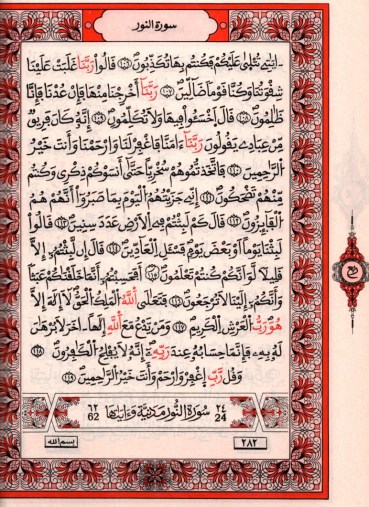 سورة النور
ءَايَٰتِے تُتْلَىٰ عَلَيْكُمْ فَكُنتُم بِهَا تُكَذِّبُونَ ١٠٦ قَالُواْ رَبَّنَا غَلَبَتْ عَلَيْنَا
شِقْوَتُنَا وَكُنَّا قَوْماً ضَآلِّينَ ١٠٧ رَبَّنَآ أَخْرِجْنَا مِنْهَا فَإِنْ عُدْنَا فَإِنَّا
ظَٰلِمُونَ ١٠٨ قَالَ اَخْسَـُٔواْ فِيهَا وَلَا تُكَلِّمُونِ ١٠٩ إِنَّهُۥ كَانَ فَرِيقٌ
مِّنْ عِبَادِے يَقُولُونَ رَبَّنَآ ءَامَنَّا فَاغْفِرْ لَنَا وَارْحَمْنَا وَأَنتَ خَيْرُ
اُلرَّٰحِمِينَ ١١٠ فَاتَّخَذتُّمُوهُمْ سُخْرِيّاً حَتَّىٰٓ أَنسَوْكُمْ ذِكْرِے وَكُنتُم
مِّنْهُمْ تَضْحَكُونَ ١١١ إِنِّے جَزَيْتُهُمُ اُلْيَوْمَ بِمَا صَبَرُوٓاْ أَنَّهُمْ هُمُ
اُلْفَآئِزُونَ ١١٢ قَالَ كَمْ لَبِثْتُمْ فِے اِلْأَرْضِ عَدَدَ سِنِينَ ١١٣ قَالُواْ
لَبِثْنَا يَوْماً أَوْ بَعْضَ يَوْمٍ فَسْـَٔلِ اِلْعَآدِّينَ ١١٤ قَالَ إِن لَّبِثْتُمْ إِلَّا
قَلِيلاً لَّوْ أَنَّكُمْ كُنتُمْ تَعْلَمُونَ ١١٥ أَفَحَسِبْتُمْ أَنَّمَا خَلَقْنَٰكُمْ عَبَثاً
وَأَنَّكُمْ إِلَيْنَا لَا تُرْجَعُونَ ١١٦ فَتَعَٰلَى اَللَّهُ اُلْمَلِكُ اُلْحَقُّ لَآ إِلَٰهَ إِلَّا
هُوَ رَبُّ اُلْعَرْشِ اِلْكَرِيمِ ١١٧ وَمَنْ يَّدْعُ مَعَ اَللَّهِ إِلَٰهاً اٰخَرَ لَا بُرْهَٰنَ
لَهُۥ بِهِۦ فَإِنَّمَا حِسَابُهُۥ عِندَ رَبِّهِۦٓ إِنَّهُۥ لَا يُفْلِحُ اُلْكَٰفِرُونَ ١١٨
وَقُل رَّبِّ اِغْفِرْ وَارْحَمْ وَأَنتَ خَيْرُ اُلرَّٰحِمِينَ ١١٩
٢٤ 24 سُورَةُ النُّورِ مَدَنِيَّة وَءَايَاتُهَا ٦٢ 62
٢٨٢ بسم الله